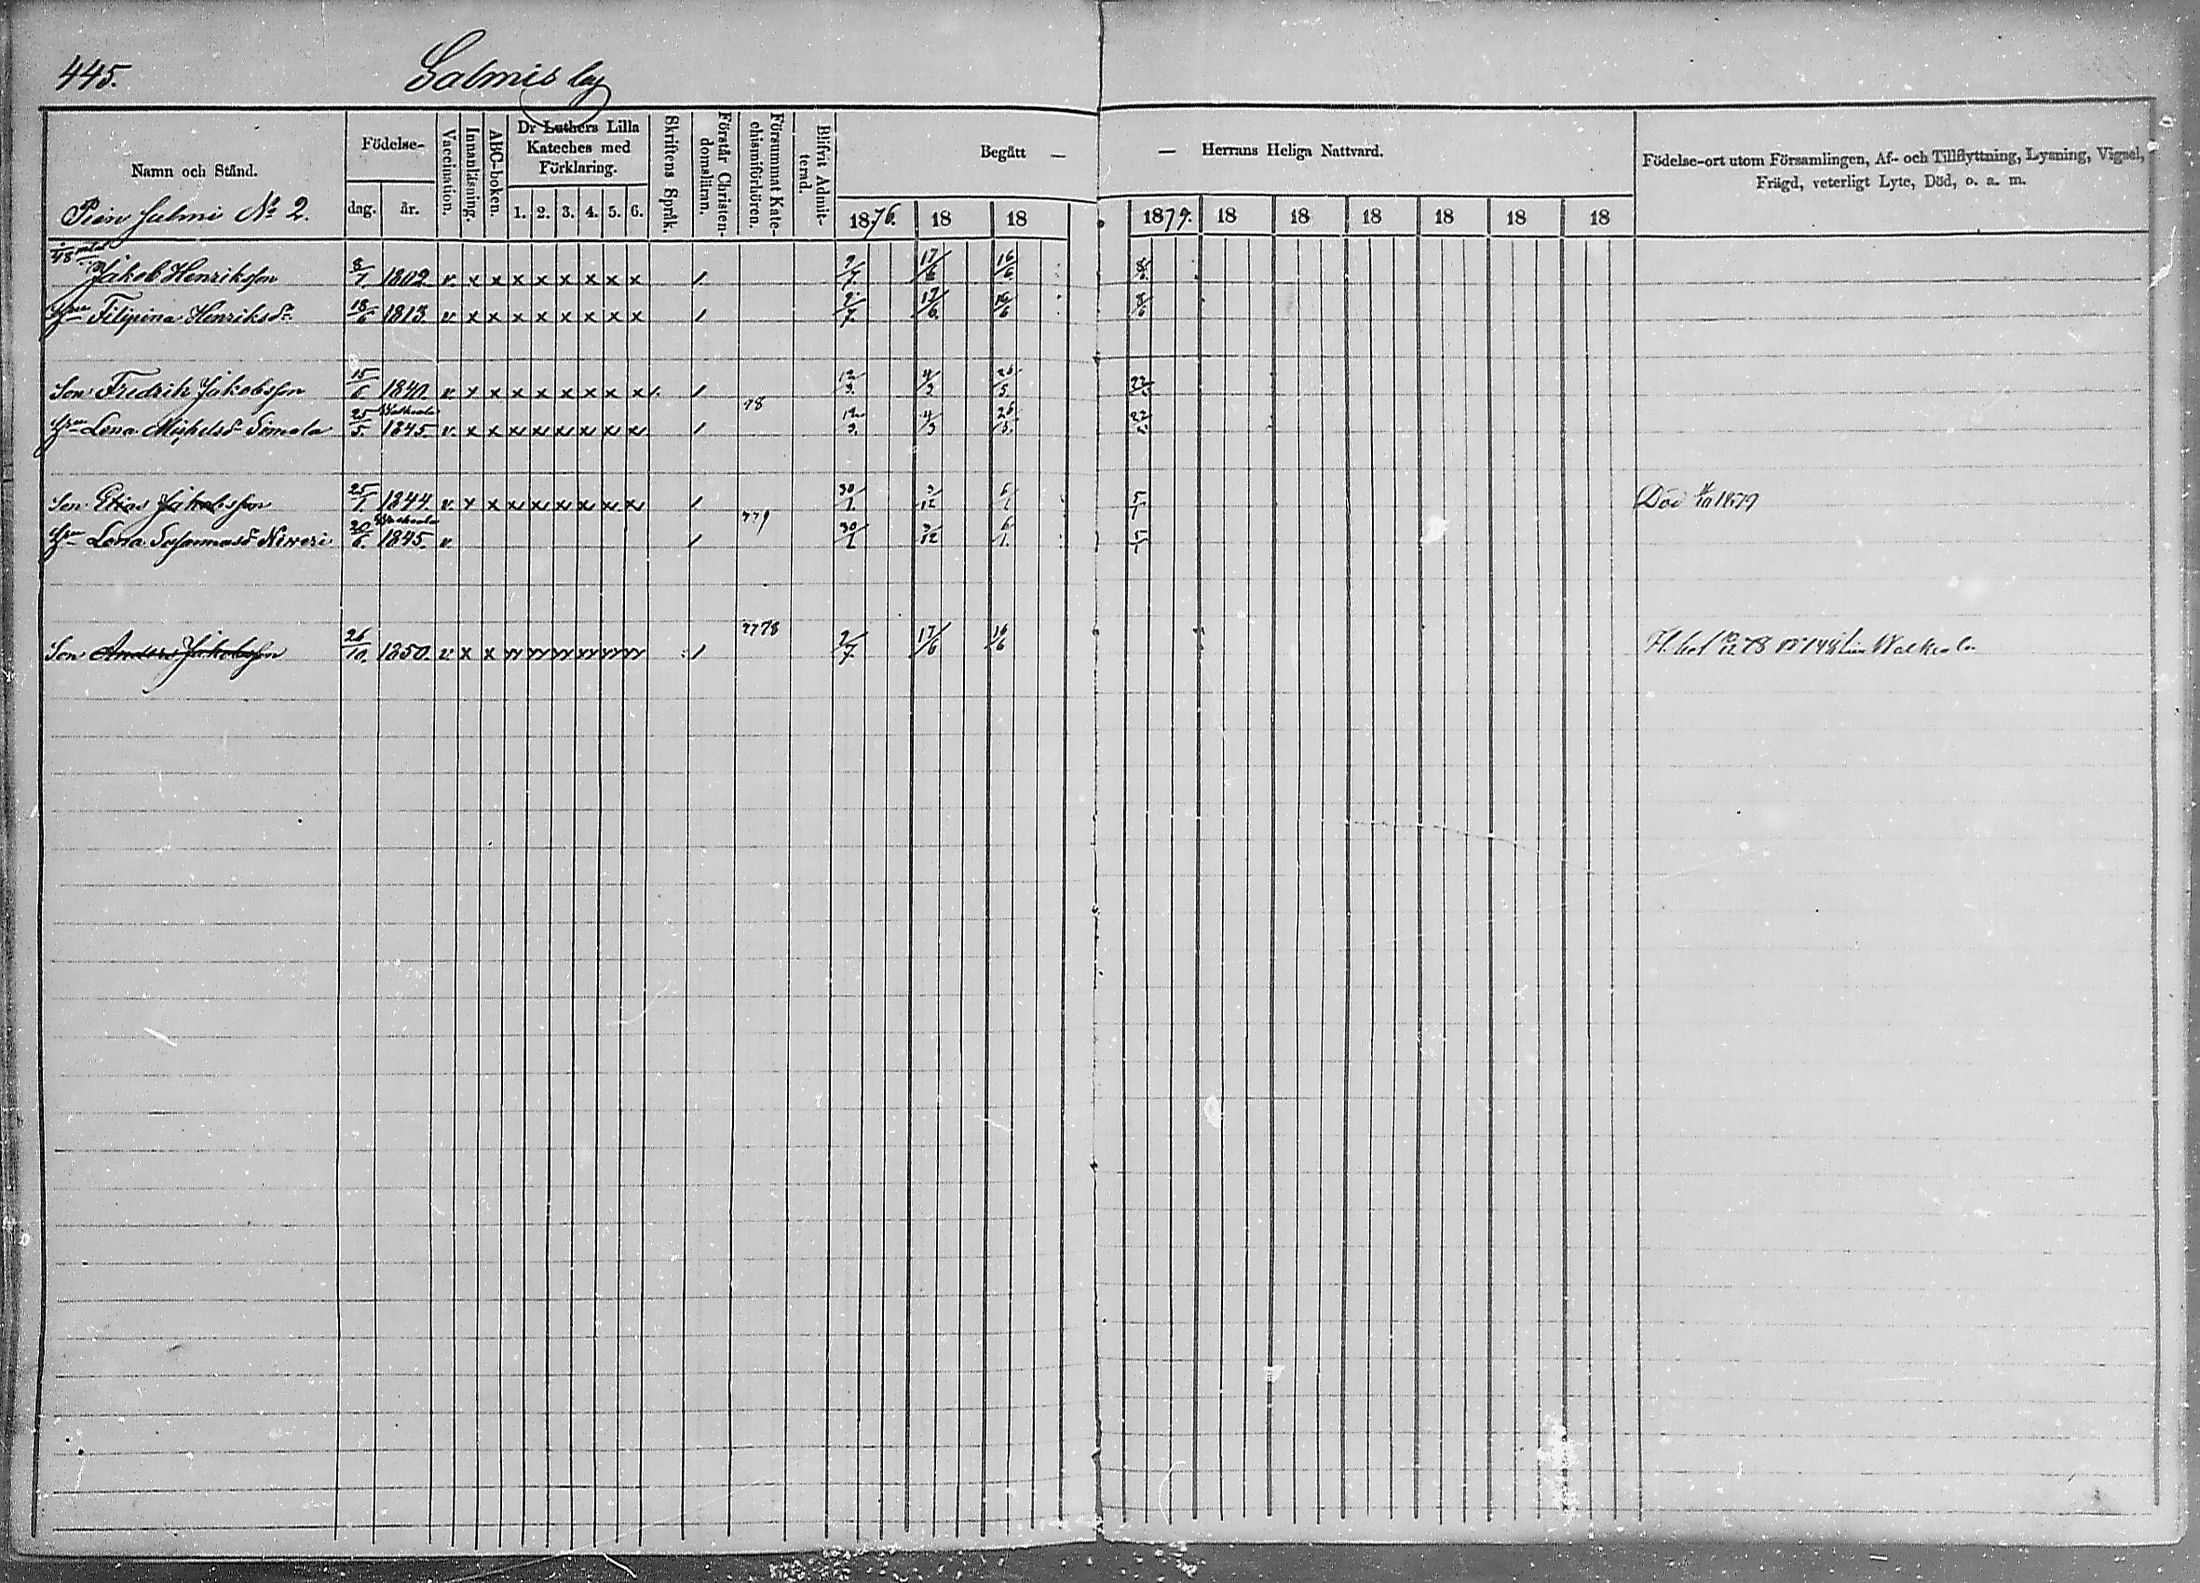 445. Salmis by
Namn och Stånd. Födelse- Vaccination. Innanläsning. ABC-boken. Dr Luthers Lilla Kateches med Förklaring. Skriftens Språk. Förstår Christendomsläran. Försummat Katechismiförhören. Blifvit Admitterad. Begått — — Herrans Heliga Nattvard. Födelse-ort utom Församlingen, Af- och Tillflyttning, Lysning, Vigsel, Frägd, veterligt Lyte, Död, o. a. m.
dag. år. 1. 2. 3. 4. 5. 6. 1876. 18 18 1879. 18 18 18 18 18 18
Pien Salmi No 2.
Jakob Henriksson 8/1 1802. v. x x x x x x x x / 9/7. 17/6 16/6 8/6
Filipina Henriksdr 18/6 1813. v. x x x x x x x x / 9/7. 17/6. 16/6 8/6
Son Fredrik Jakobsson 15/6 1840. v. x x x x x x x x / 12/3. 4/3 26/5
78
Lena Michelsd. Simola 25/5. 1845. v. x x x x x x x x / 12/3. 4/3 26/5.
Son Elias Jakobsson 25/1 1844. v. x x x x x x x x / 30/1. 3/12 6/1 5/1 1879
Lena 20/6. 1845. v. / 30/1 3/12 6/1. 5/1
77 78
Son Anders Jakobsson 26/10. 1850. v. x x / 9/7. 17/6 16/6 78 Walkeala